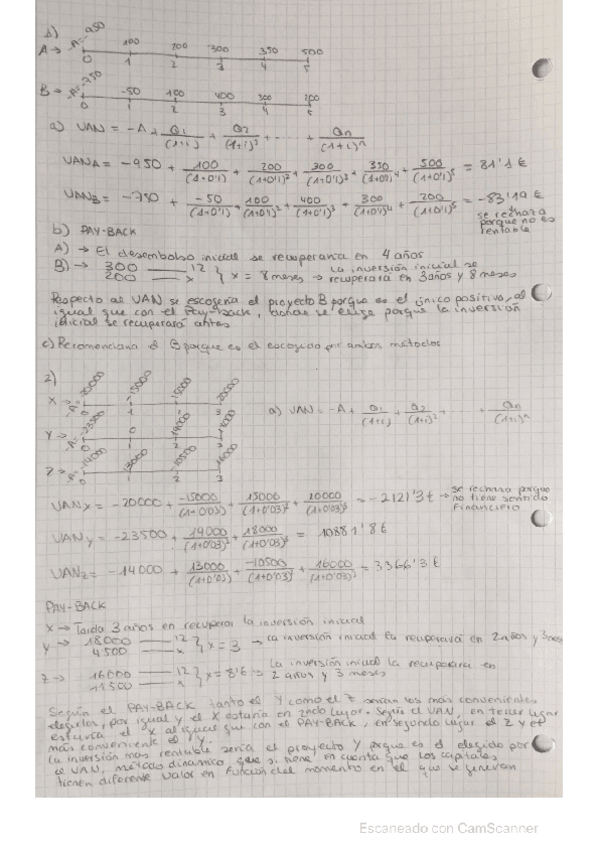 1)
A → -A=-950 100 200 300 350 500
0 1 2 3 4 5
B → -A=-750 -50 100 400 300 200
0 1 2 3 4 5
a) VAN = -A + Q1/(1+i) + Q2/(1+i)² + ..... + Qn/(1+i)ⁿ
VANA = -950 + 100/(1+0'1) + 200/(1+0'1)² + 300/(1+0'1)³ + 350/(1+0'1)⁴ + 500/(1+0'1)⁵ = 81'1 €
VANB = -750 + -50/(1+0'1) + 100/(1+0'1)² + 400/(1+0'1)³ + 300/(1+0'1)⁴ + 200/(1+0'1)⁵ = -83'19 €
se rechaza porque no es rentable
b) PAY-BACK
A) → El desembolso inicial se recuperaría en 4 años
B) → 300 — 12
200 — x } x = 8 meses → la inversión inicial se recuperará en 3 años y 8 meses
Respecto al VAN se escogería el proyecto B porque es el único positivo, al
igual que con el Pay-back, donde se elige porque la inversión
inicial se recuperará antes
c) Recomenciona el B porque es el escogido por ambos métodos
2)
X → -A=-20000 -15000 15000 20000
0 1 2 3
Y → -A=-23500 0 19000 18000
0 1 2 3
Z → -A=-14000 13000 -10500 16000
0 1 2 3
a) VAN = -A + Q1/(1+i) + Q2/(1+i)² + ..... + Qn/(1+i)ⁿ
VANX = -20000 + -15000/(1+0'03) + 15000/(1+0'03)² + 20000/(1+0'03)³ = -2121'3 € → se rechaza porque no tiene sentido financiero
VANY = -23500 + 19000/(1+0'03)² + 18000/(1+0'03)³ = 10881'8 €
VANZ = -14000 + 13000/(1+0'03) + -10500/(1+0'03)² + 16000/(1+0'03)³ = 3366'3 €
PAY-BACK
X → Tarda 3 años en recuperar la inversión inicial
Y → 18000 — 12
4500 — x } x = 3 → la inversión inicial la recuperará en 2 años y 3 meses
Z → 16000 — 12
11500 — x } x = 8'6 → la inversión inicial la recuperará en
2 años y 3 meses
Según el PAY-BACK tanto el Y como el Z serían los más convenientes
elegirlos, por igual y el X estaría en 2ndo lugar. Según el VAN, en tercer lugar
estaría el X al igual que con el PAY-BACK, en segundo lugar el Z y el
más conveniente el Y.
La inversión más rentable sería el proyecto Y porque es el elegido por
el VAN, método dinámico que sí tiene en cuenta que los capitales
tienen diferente valor en función del momento en el que se generan
Escaneado con CamScanner